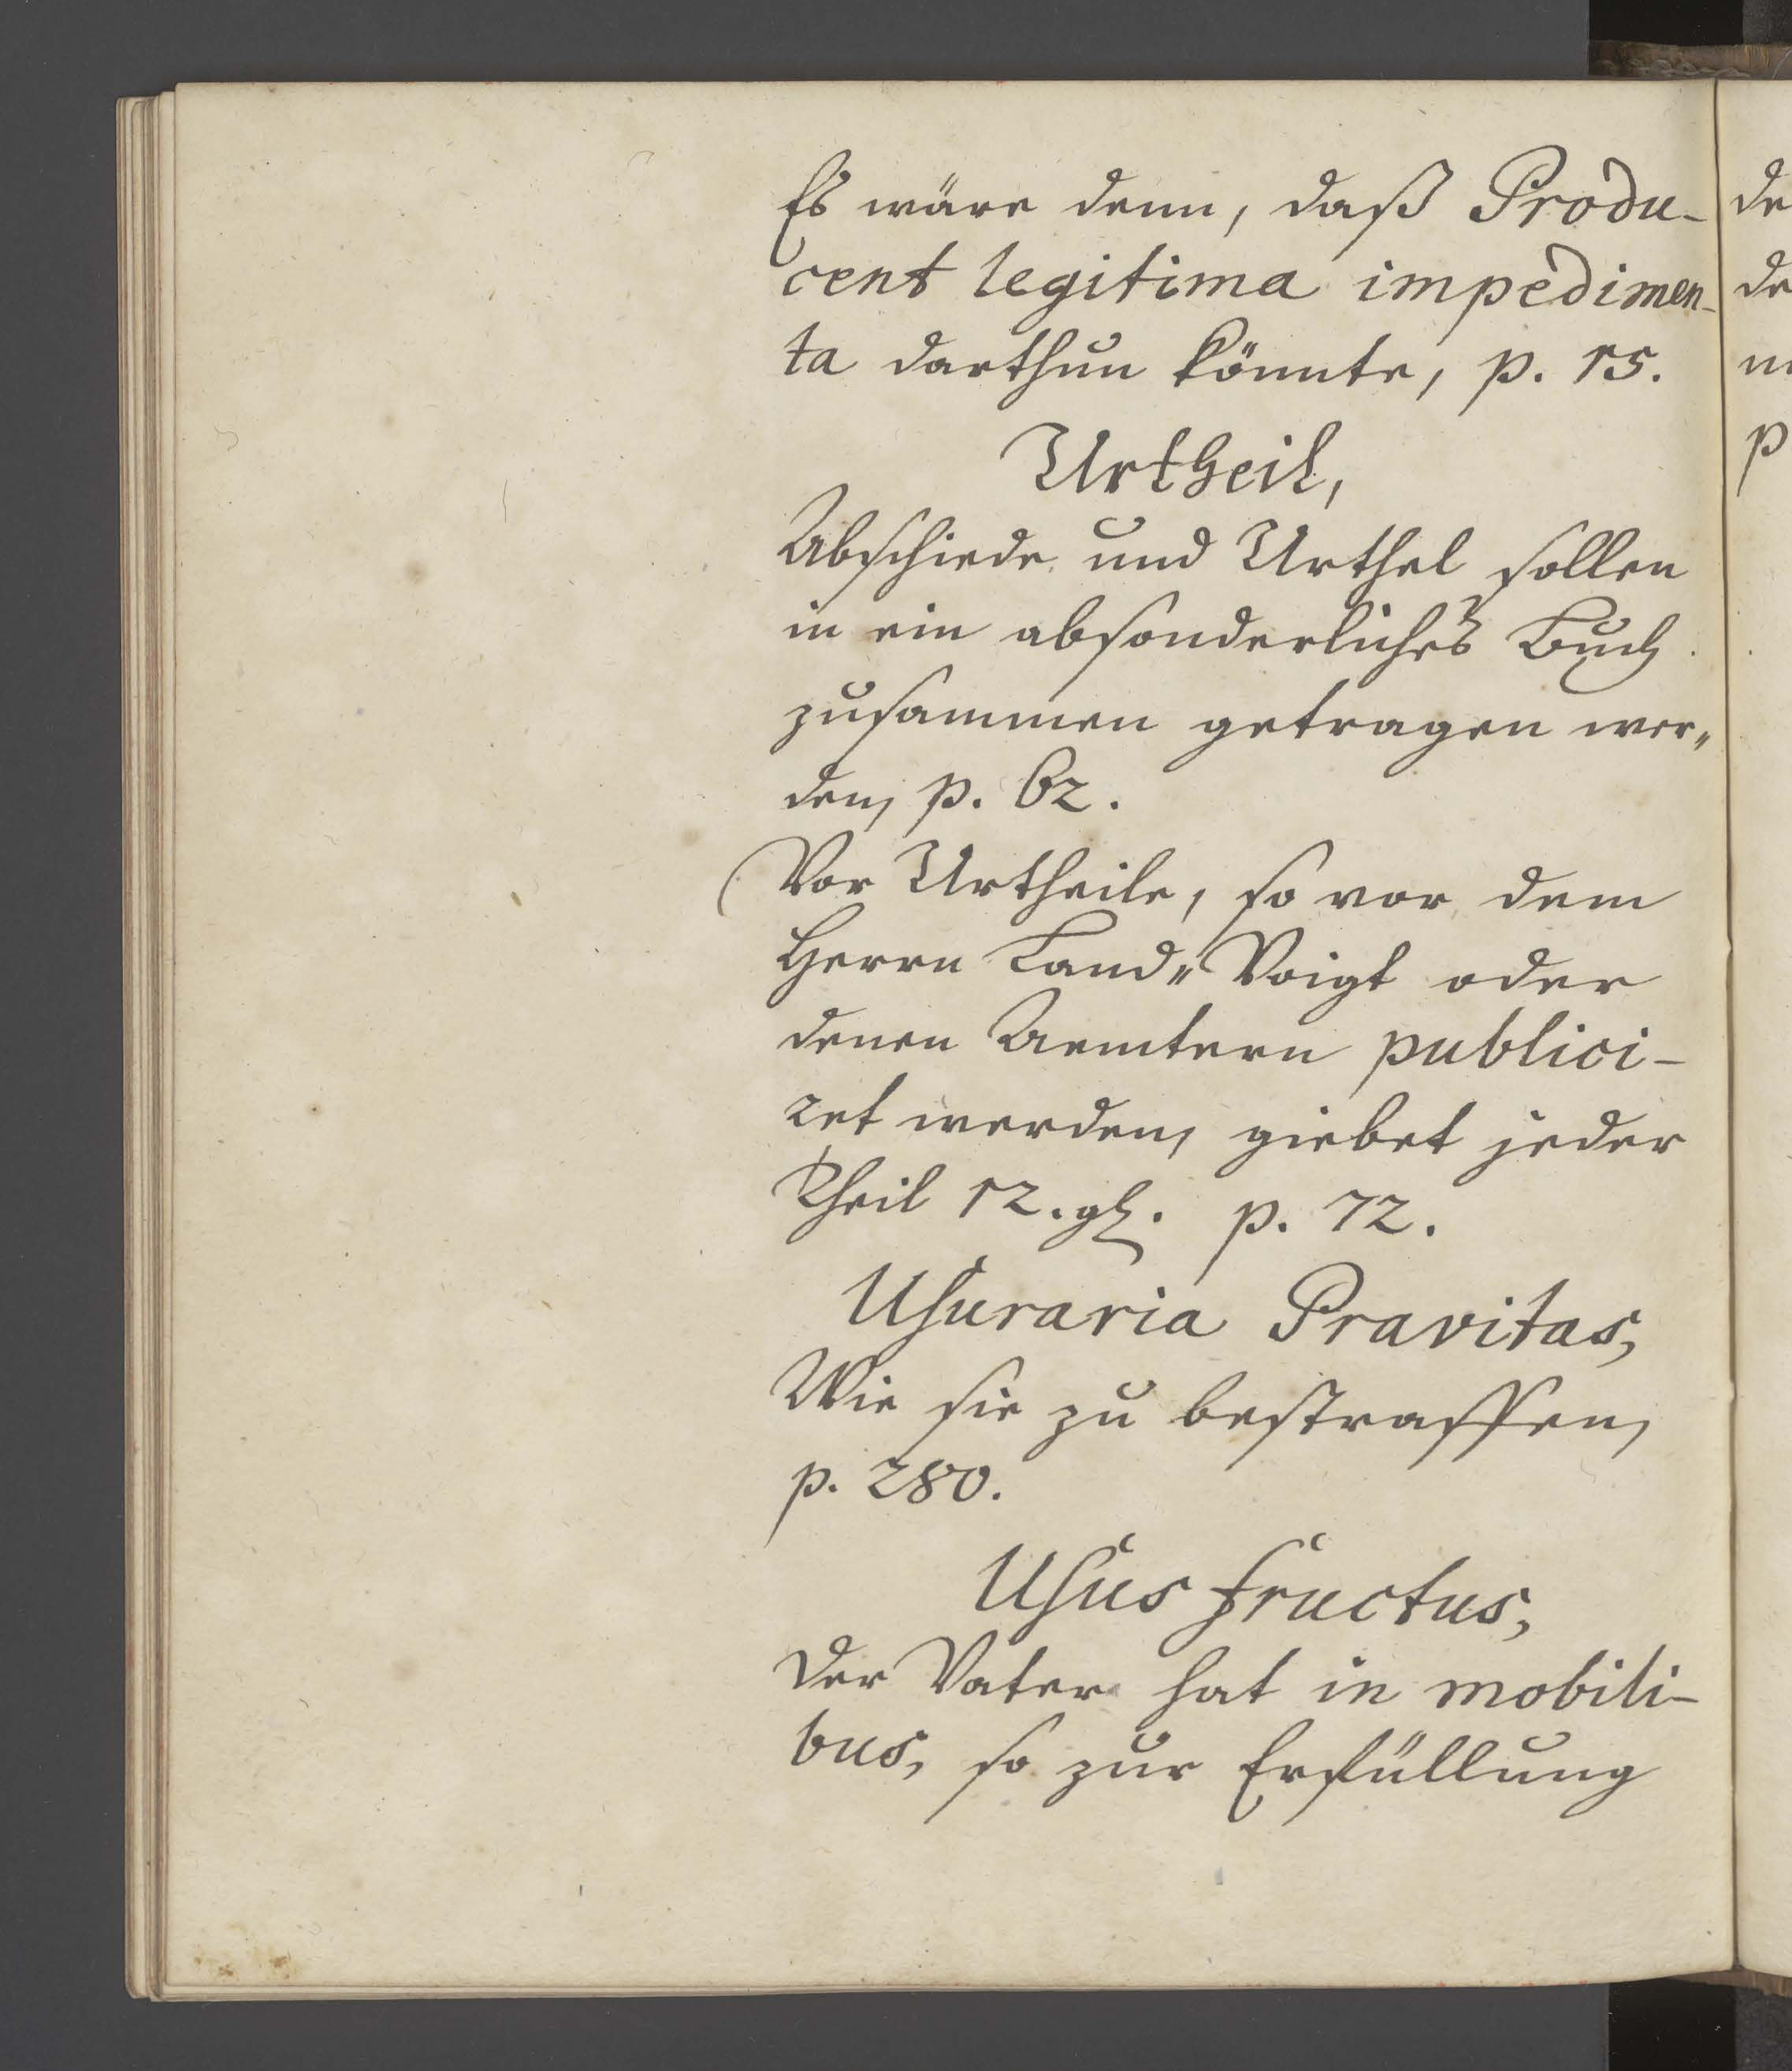 Es wäre denn, daß Produ-
cent legitima impedimen-
ta darthun könnte, p. 15.
Urtheil,
Abschiede und Urthel sollen
in ein absonderliches Buch
zusammen getragen wer„
den, p. 62.
Vor Urtheile, so vor dem
Herrn Land„Voigt oder
denen Aemtern publici-
ret werden, giebet jeder
Theil 12. gl. p. 72.
Usuraria Pravitas,
Wie sie zu bestraffen,
p. 280.
Usus fructus,
Der Vater hat in mobili-
bus, so zur Erfüllung